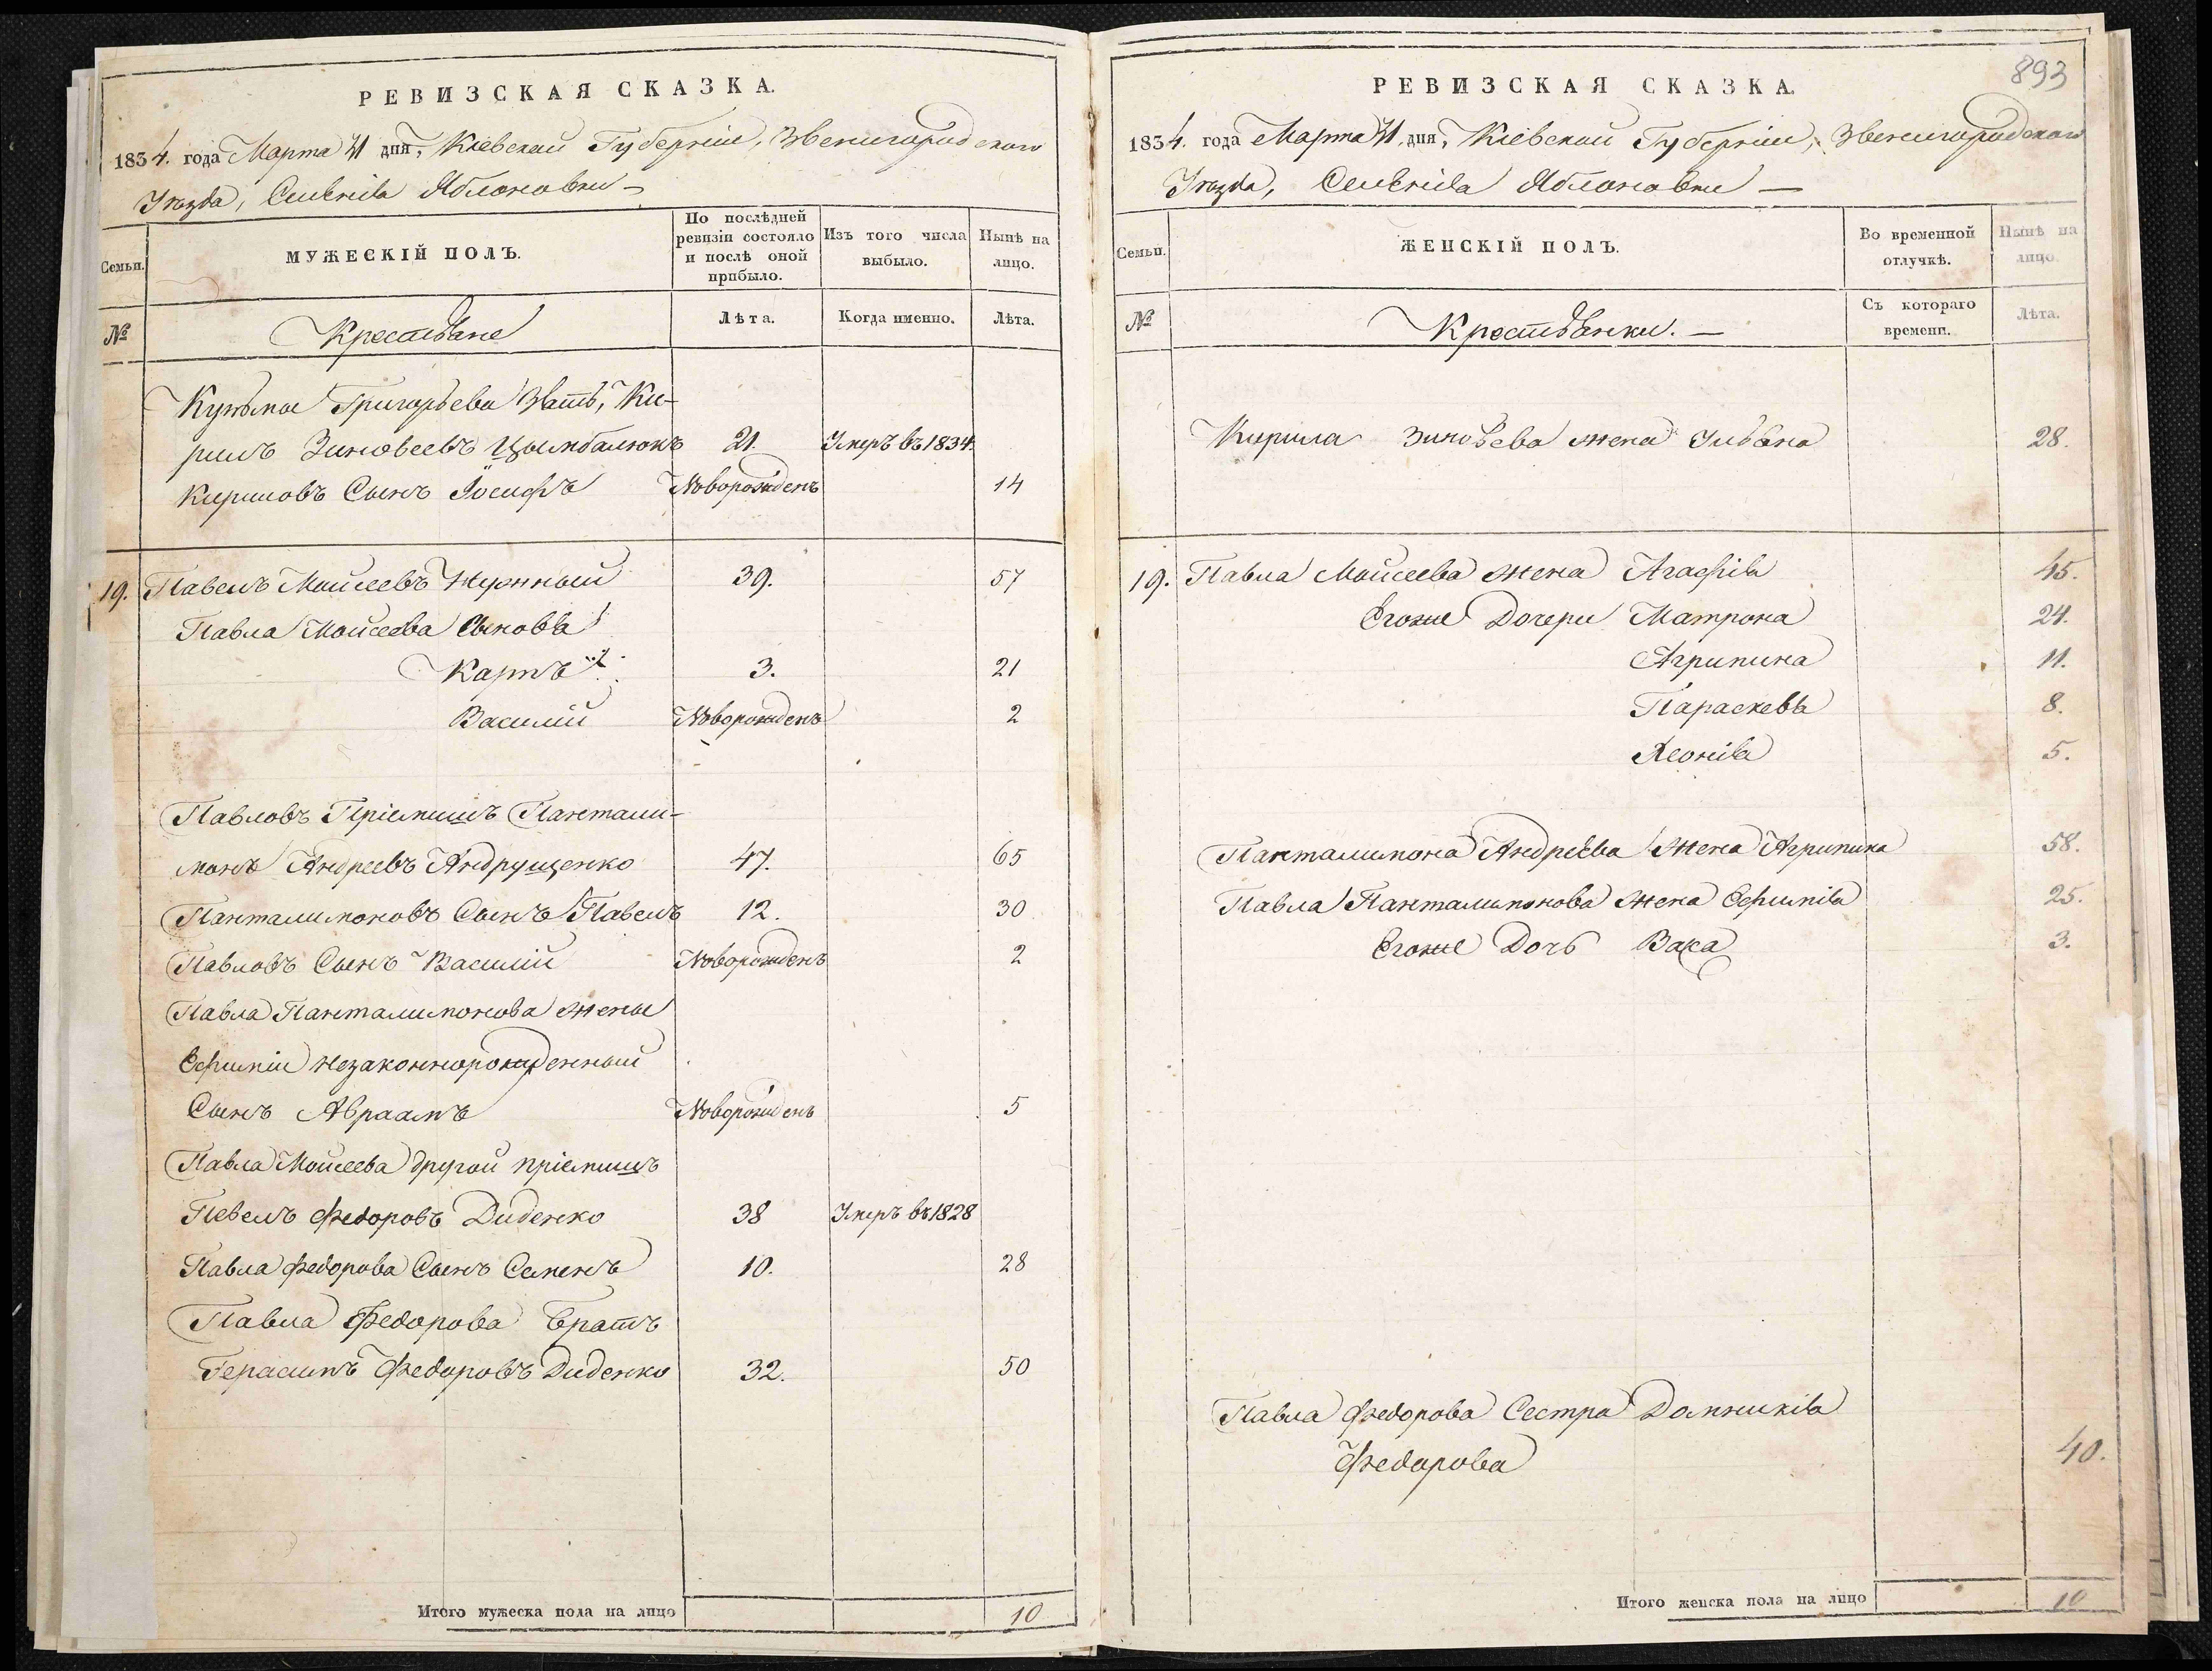 РЕВИЗСКАЯ СКАЗКА.
1834. года Марта 31 дня, Кіевской Губерніи, Звенигородского
Уѣзда, Селенія Яблоновки —
Семьи.
МУЖЕСКІЙ ПОЛЪ.
По послѣдней
ревизіи состояло
и послѣ оной
прибыло.
Изъ того числа
выбыло.
Нынѣ на
лицо.
№
Крестьяне
Лѣта.
Когда именно.
Лѣта.
Кузьмы Григорьева Зять, Ки-
рилъ Зиновеевъ Цымбалюкъ 21. Умеръ въ 1834.
Кириловъ Сынъ Іосифъ Новорожденъ 14
19. Павелъ Моисеевъ Нужный 39. 57
Павла Моисеева Сыновья 1
Карпъ 2 3. 21
Василій Новорожденъ 2
Павловъ Пріемышъ Пантали-
монъ Андреевъ Андрущенко 47. 65
Панталимоновъ Сынъ Павелъ 12. 30
Павловъ Сынъ Василій Новорожденъ 2
Павла Панталимонова жены
Ефиміи незаконнорожденный
Сынъ Авраамъ Новорожденъ 5
Павла Моисеева другой пріемышъ
Певелъ Федоровъ Диденко 38 Умеръ въ 1828
Павла Федорова Сынъ Семенъ 10. 28
Павла Федорова Братъ
Герасимъ Федоровъ Диденко 32. 50
Итого мужеска пола на лицо 10
893
РЕВИЗСКАЯ СКАЗКА.
1834. года Марта 31 дня, Кіевской Губерніи, Звенигородского
Уѣзда, Селенія Яблоновки —
Семьи.
ЖЕНСКІЙ ПОЛЪ.
Во временной
отлучкѣ.
Нынѣ на
лицо.
№
Крестьянки. —
Съ котораго
времени.
Лѣта.
Кирила Зиновьева жена Ульяна 28.
19. Павла Моисеева жена Агафія 45.
Егоже Дочери Матрона 24.
Агрипина 11.
Параскевья 8.
Леонія 5.
Панталимона Андреева Жена Агрипина 58.
Павла Панталимонова жена Ефимія 25.
Егоже Дочь Васа 3.
Павла Федорова Сестра Домникія
Федорова 40.
Итого женска пола на лицо 10